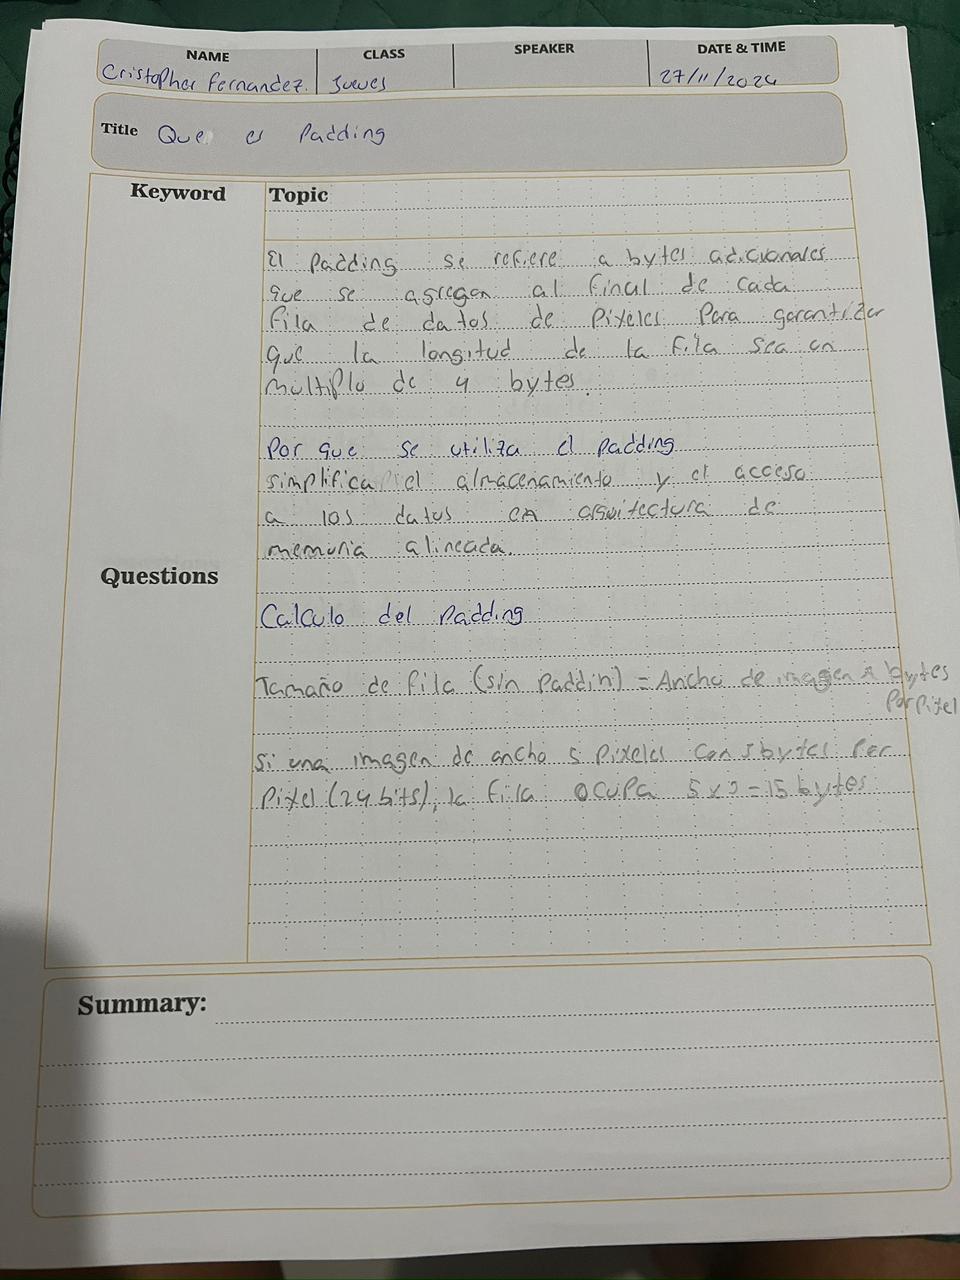 NAME CLASS SPEAKER DATE & TIME
Cristopher Fernandez. Jueves 27/11/2024
Title Que es Padding
Keyword Topic
El Padding se refiere a bytes adicionales
que se agregan al final de cada
fila de datos de Pixeles Para garantizar
que la longitud de la fila sea un
multiplo de 4 bytes.
Por que se utiliza el padding
simplifica el almacenamiento y el acceso
a los datos en arquitectura de
memoria alineada.
Questions
Calculo del Padding
Tamaño de fila (sin Paddin) = Ancho de imagen x bytes
Por Pixel
Si una imagen de ancho 5 Pixeles con 3 bytes Per
Pixel (24 bits), la fila ocupa 5 x 3 = 15 bytes
Summary: